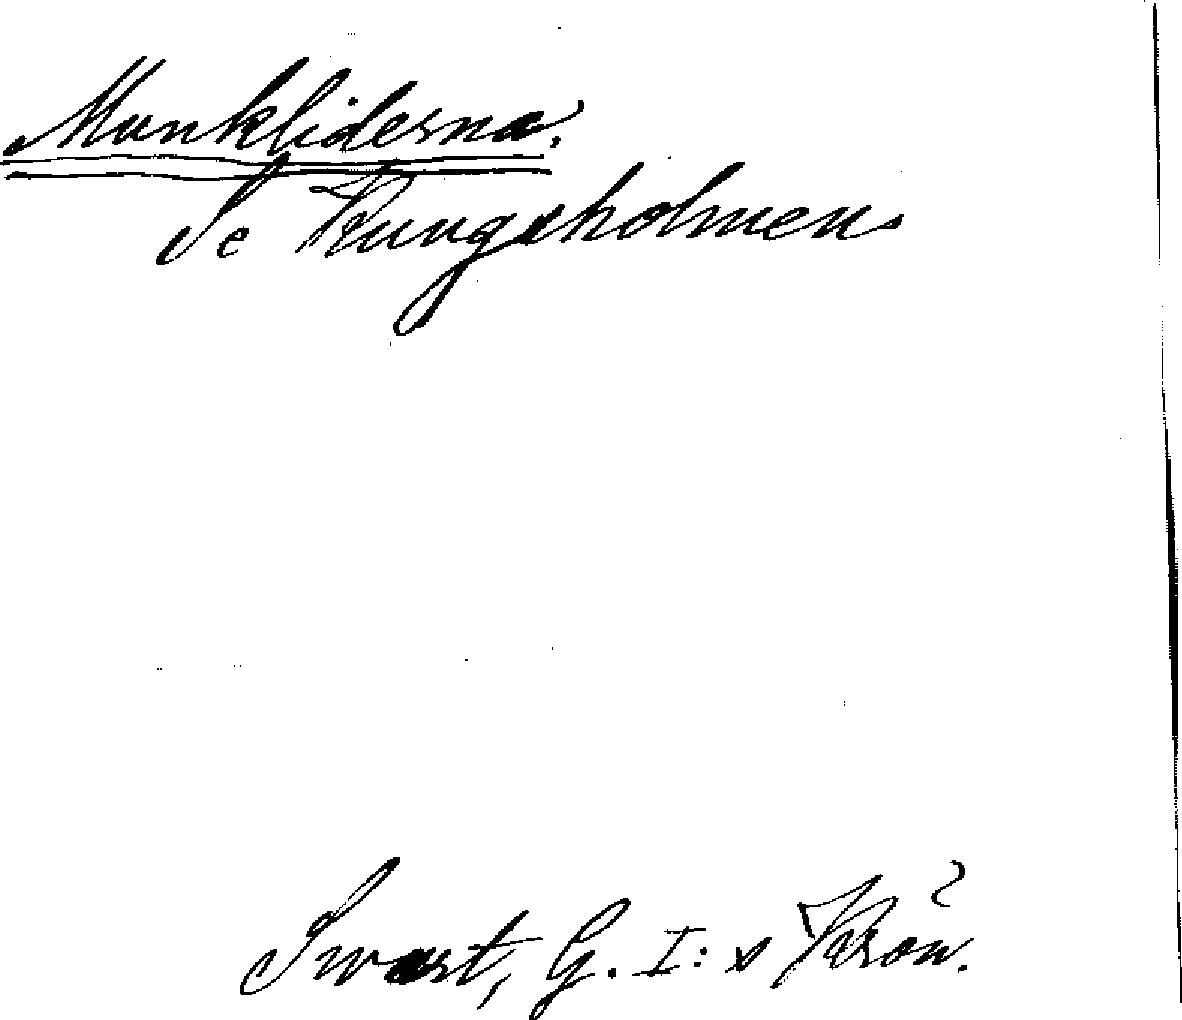 Munkliderna.
Se Kungsholmen.
Swart, G. I:s Krön.